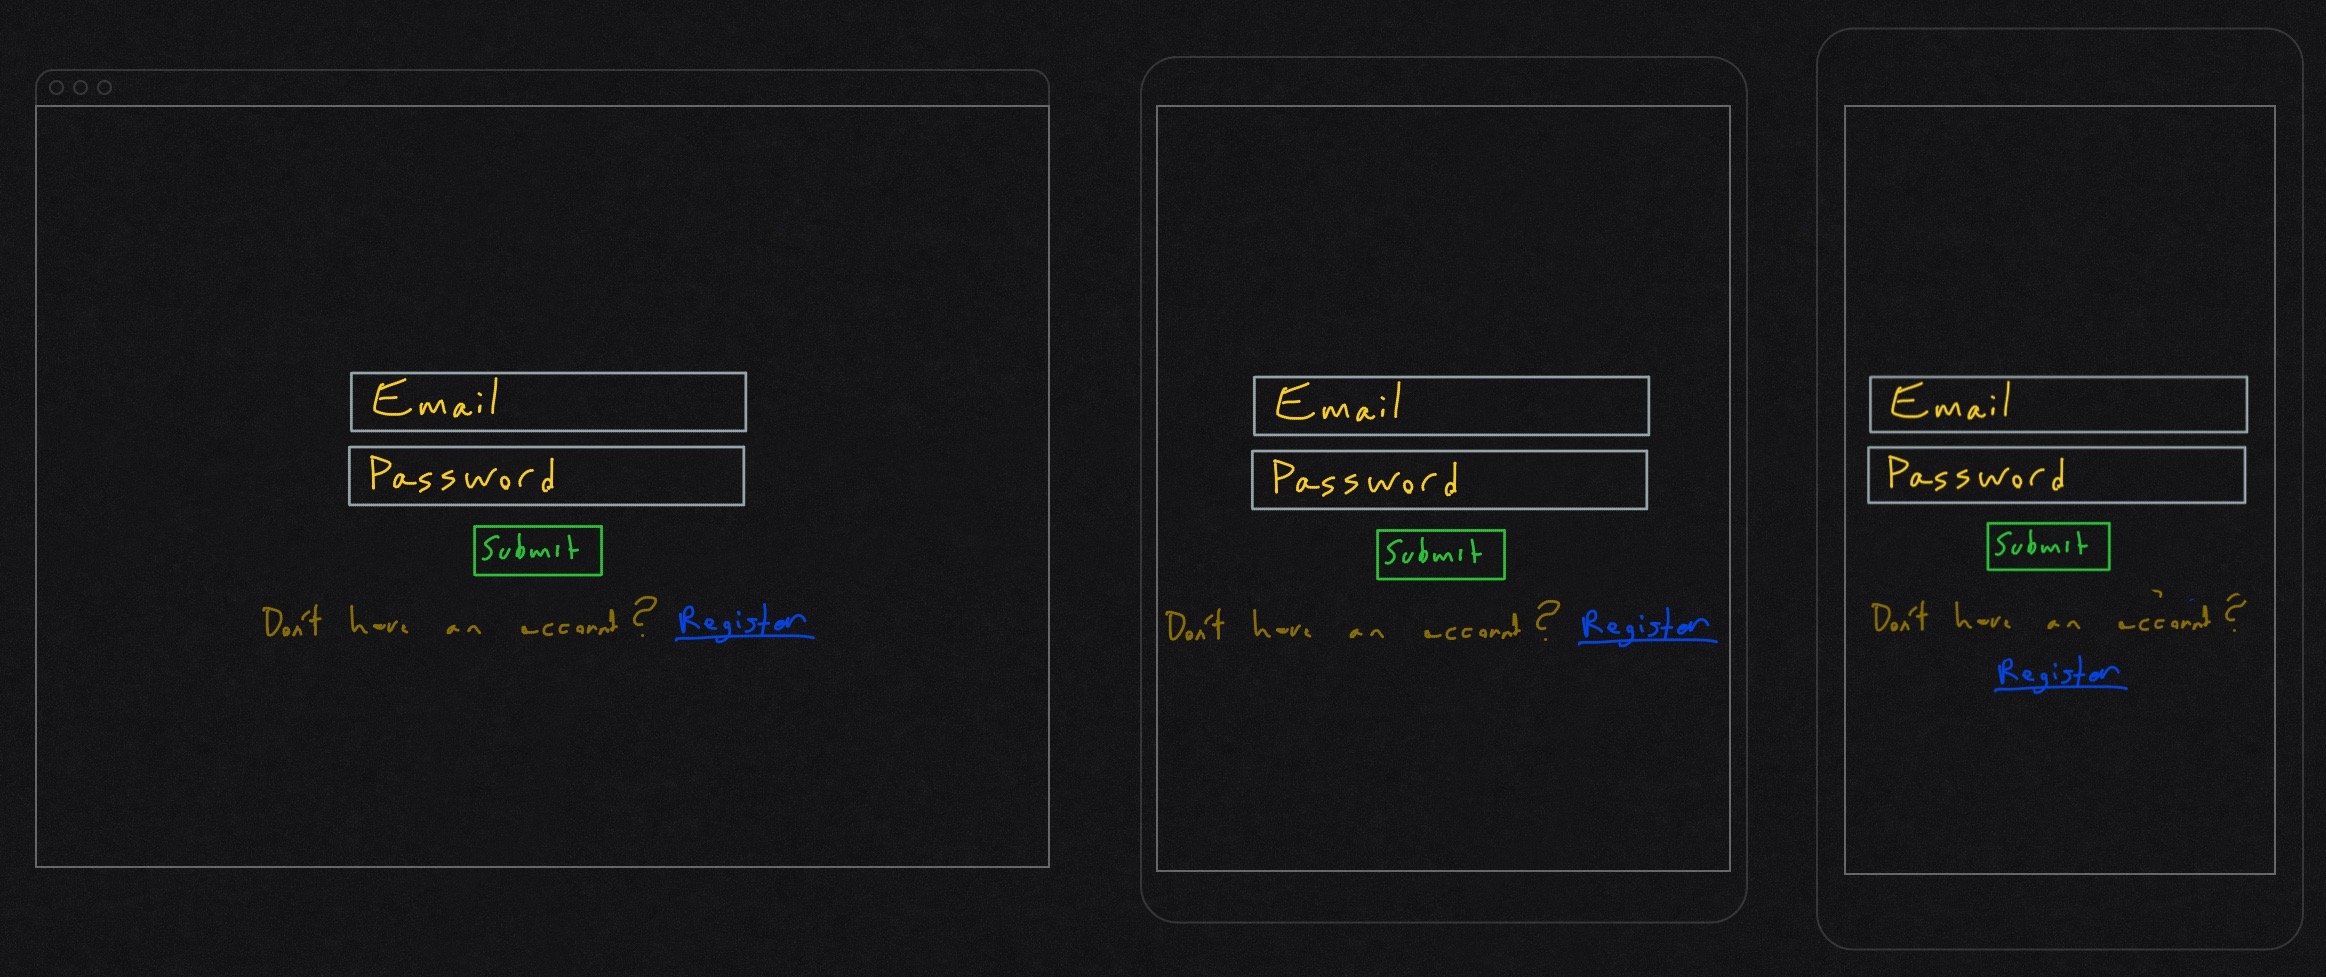 Email
Password
Submit
Don't have an account? Register
Email
Password
Submit
Don't have an account? Register
Email
Password
Submit
Don't have an account?
Register